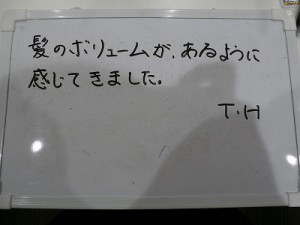 髪のボリュームが、あるように
感じてきました。
T・H